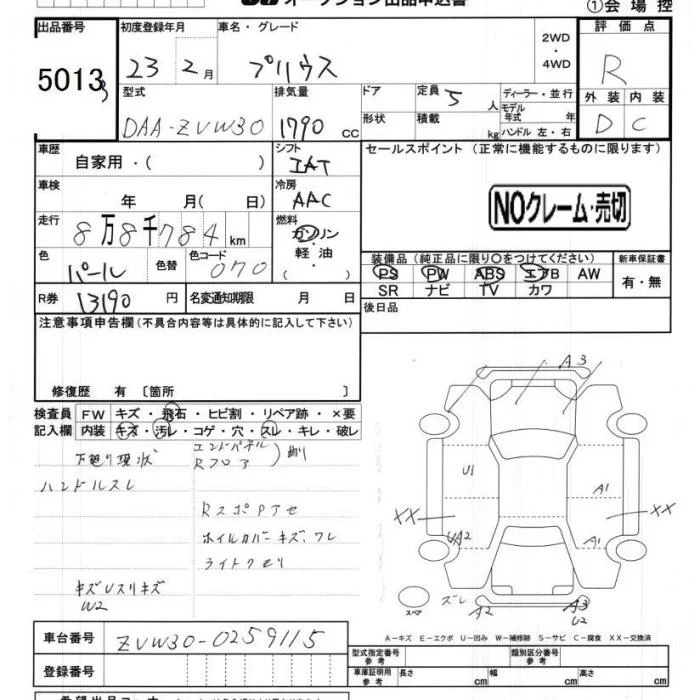 オークション出品申込書
①会場控
出品番号 初度登録年月 車名・グレード 2WD・4WD 評価点
5013 23 2月 プリウス R
型式 排気量 ドア 定員 5人 ディーラー・並行
モデル年式 年
DAA-ZVW30 1790cc 形状 積載 kg ハンドル 左・右
外装 内装
D C
車歴 自家用・( ) シフト IAT
セールスポイント (正常に機能するものに限ります)
車検 年 月( 日) 冷房 AAC
NOクレーム・売切
走行 8万8千784km 燃料 ガソリン・軽油・( )
色 パール 色替 色コード 070
装備品(純正品に限り○をつけてください) 新車保証書
PS PW ABS エアB AW 有・無
SR ナビ TV カワ
R券 13190円 名変通知期限 月 日 後日品
注意事項申告欄(不具合内容等は具体的に記入して下さい)
修復歴 有〔箇所 〕
検査員記入欄
FW キズ・飛石・ヒビ割・リペア跡・×要
内装 キズ・汚レ・コゲ・穴・スレ・キレ・破レ
下廻り現状 エンドパネル
Rフロア
ハンドルスレ
RスポPアセ
ホイルカバーキズ、ワレ
ライトクモリ
キズUスリキズ
W2
A3
U1
A1
XX
XX
UA2
A1
スペア
ズレ
A2
A3
U2
A-キズ E-エクボ U-凹み W-補修跡 S-サビ C-腐食 XX-交換済
車台番号 ZVW30-0259115
登録番号
型式指定番号 参考 類別区分番号 参考
車庫証明用 参考 長さ cm 幅 cm 高さ cm